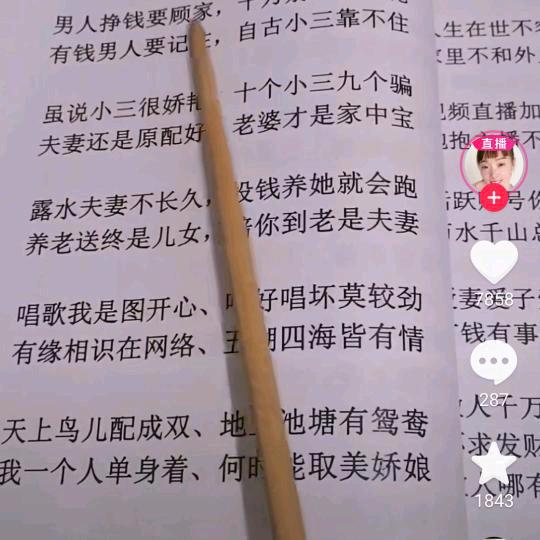 男人挣钱要顾家，
有钱男人要记 ，自古小三靠不住
虽说小三很娇 十个小三九个骗
夫妻还是原配好 老婆才是家中宝
露水夫妻不长久，没钱养她就会跑
养老送终是儿女，陪你到老是夫妻
唱歌我是图开心、 好唱坏莫较劲
有缘相识在网络、五湖四海皆有情
天上鸟儿配成双、地 池塘有鸳鸯
我一个人单身着、何时能取美娇娘
人生在世不
家里不和外
视频直播加
直播
7858
287
1843
水千山
钱有事
人千万
求发财
人哪有